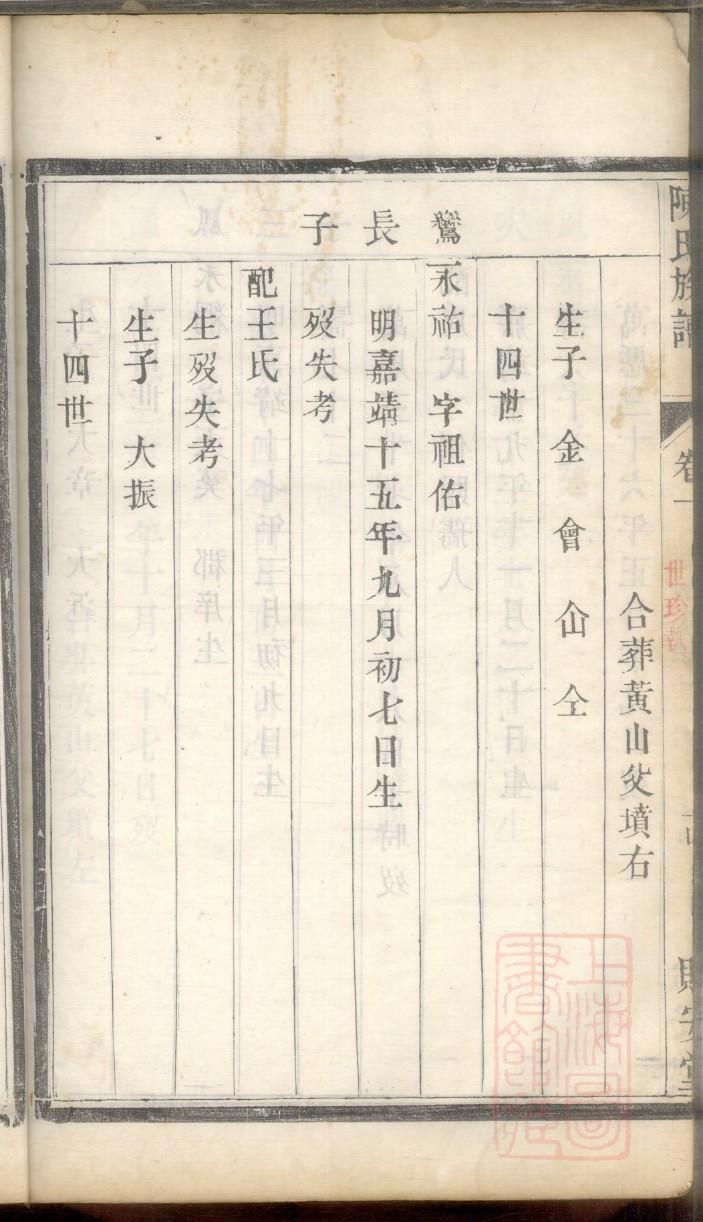 陳氏族譜
卷一
世珍
合葬黃山父墳右
生子 金 會 仚 仝
十四世
鸞長子
永祐 字祖佑
明嘉靖十五年九月初七日生
歿失考
配王氏
生歿失考
生子 大振
十四世
上海圖書館藏